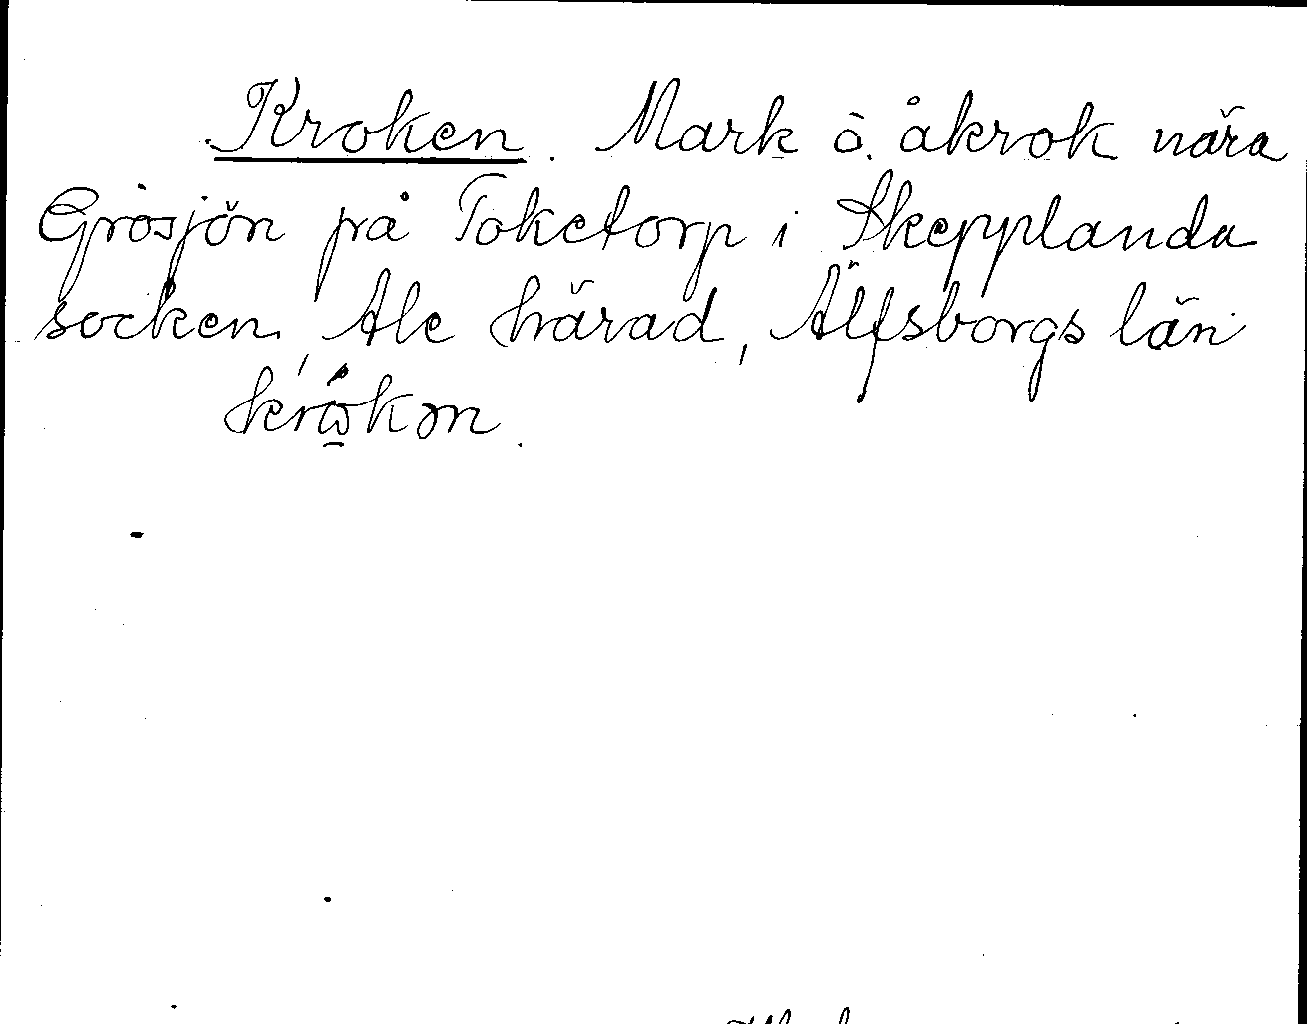 Kroken. Mark o. åkrok nära
Grösjön på Toketorp i Skepplanda
socken, Ale härad, Älfsborgs län